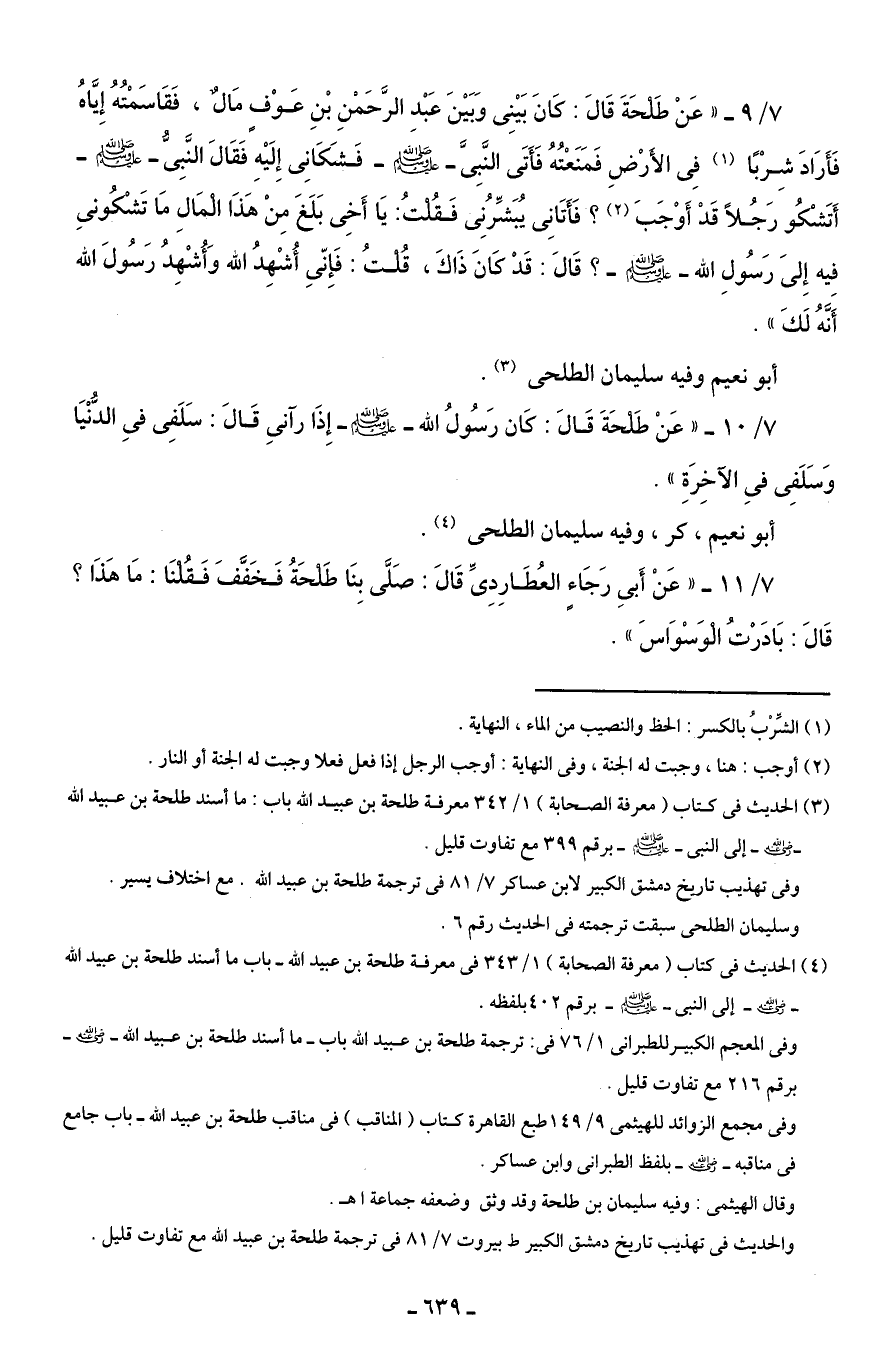 ٧/ ٩ ـ « عَنْ طَلْحَةَ قَالَ : كَانَ بَيْنِى وَبَيْنَ عَبْدِ الرَّحْمَنِ بْنِ عَوْفٍ مَالٌ ، فَقَاسَمْتُهُ إِيَّاهُ
فَأَرَادَ شِرْبًا (١) فِى الأَرْضِ فَمَنَعْتُهُ فَأَتَى النَّبِىَّ ـ ﷺ ـ فَشكَانِى إِلَيْهِ فَقَالَ النَّبِىُّ ـ ﷺ ـ
أَتَشْكُو رَجُلاً قَدْ أَوْجَبَ (٢) ؟ فَأَتَانِى يُبَشِّرُنِى فَقُلْتُ: يَا أَخِى بَلَغَ مِنْ هَذَا الْمَالِ مَا تَشْكُونِى
فِيه إِلىَ رَسُولِ الله ـ ﷺ ـ ؟ قَالَ : قَدْ كَانَ ذَاكَ ، قُلْتُ : فَإِنِّى أُشْهِدُ الله وَأُشْهِدُ رَسُولَ الله
أَنَّهُ لَكَ » .
أبو نعيم وفيه سليمان الطلحى (٣) .
٧/ ١٠ ـ « عَنْ طَلْحَةَ قَالَ : كَان رَسُولُ الله ـ ﷺ ـ إِذَا رآنِى قَالَ : سَلَفِى فِى الدُّنْيَا
وَسَلَفِى فىِ الآخِرَةِ » .
أبو نعيم ، كر ، وفيه سليمان الطلحى (٤) .
٧/ ١١ ـ « عَنْ أَبىِ رَجَاءٍ العُطَارِدِىِّ قَالَ : صَلَّى بِنَا طَلْحَةُ فَخَفَّفَ فَقُلْنَا : مَا هَذَا ؟
قَالَ : بَادَرْتُ الْوَسْوَاسَ » .
(١) الشِّرْبُ بالكسر : الحظ والنصيب من الماء ، النهاية .
(٢) أوجب : هنا ، وجبت له الجنة ، وفى النهاية : أوجب الرجل إذا فعل فعلا وجبت له الجنة أو النار .
(٣) الحديث فى كتاب ( معرفة الصحابة ) ١/ ٣٤٢ معرفة طلحة بن عبيد الله باب : ما أسند طلحة بن عبيد الله
ـ رضي الله عنه ـ إلى النبى ـ ﷺ ـ برقم ٣٩٩ مع تفاوت قليل .
وفى تهذيب تاريخ دمشق الكبير لابن عساكر ٧/ ٨١ فى ترجمة طلحة بن عبيد الله . مع اختلاف يسير .
وسليمان الطلحى سبقت ترجمته فى الحديث رقم ٦ .
(٤) الحديث فى كتاب ( معرفة الصحابة ) ١/ ٣٤٣ فى معرفة طلحة بن عبيد الله ـ باب ما أسند طلحة بن عبيد الله
ـ رضي الله عنه ـ إلى النبى ـ ﷺ ـ برقم ٤٠٢ بلفظه .
وفى المعجم الكبير للطبرانى ١/ ٧٦ فى: ترجمة طلحة بن عبيد الله باب ـ ما أسند طلحة بن عبيد الله ـ رضي الله عنه ـ
برقم ٢١٦ مع تفاوت قليل .
وفى مجمع الزوائد للهيثمى ٩/ ١٤٩ طبع القاهرة كتاب ( المناقب ) فى مناقب طلحة بن عبيد الله ـ باب جامع
فى مناقبه ـ رضي الله عنه ـ بلفظ الطبرانى وابن عساكر .
وقال الهيثمى : وفيه سليمان بن طلحة وقد وثق وضعفه جماعة ا هـ .
والحديث فى تهذيب تاريخ دمشق الكبير ط بيروت ٧/ ٨١ فى ترجمة طلحة بن عبيد الله مع تفاوت قليل .
ـ ٦٣٩ ـ